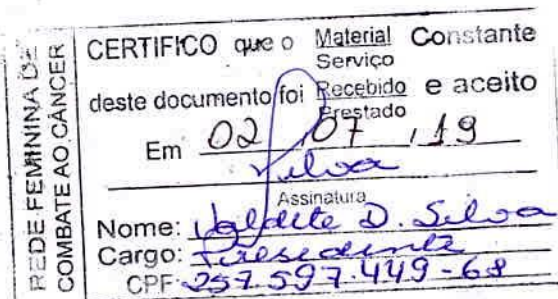 REDE FEMININA DE
COMBATE AO CÂNCER
CERTIFICO que o Material Constante
Serviço
deste documento foi Recebido e aceito
Prestado
Em 02 / 07 / 19
Silva
Assinatura
Nome: Valdete D. Silva
Cargo: Presidente
CPF 257.597.449-68